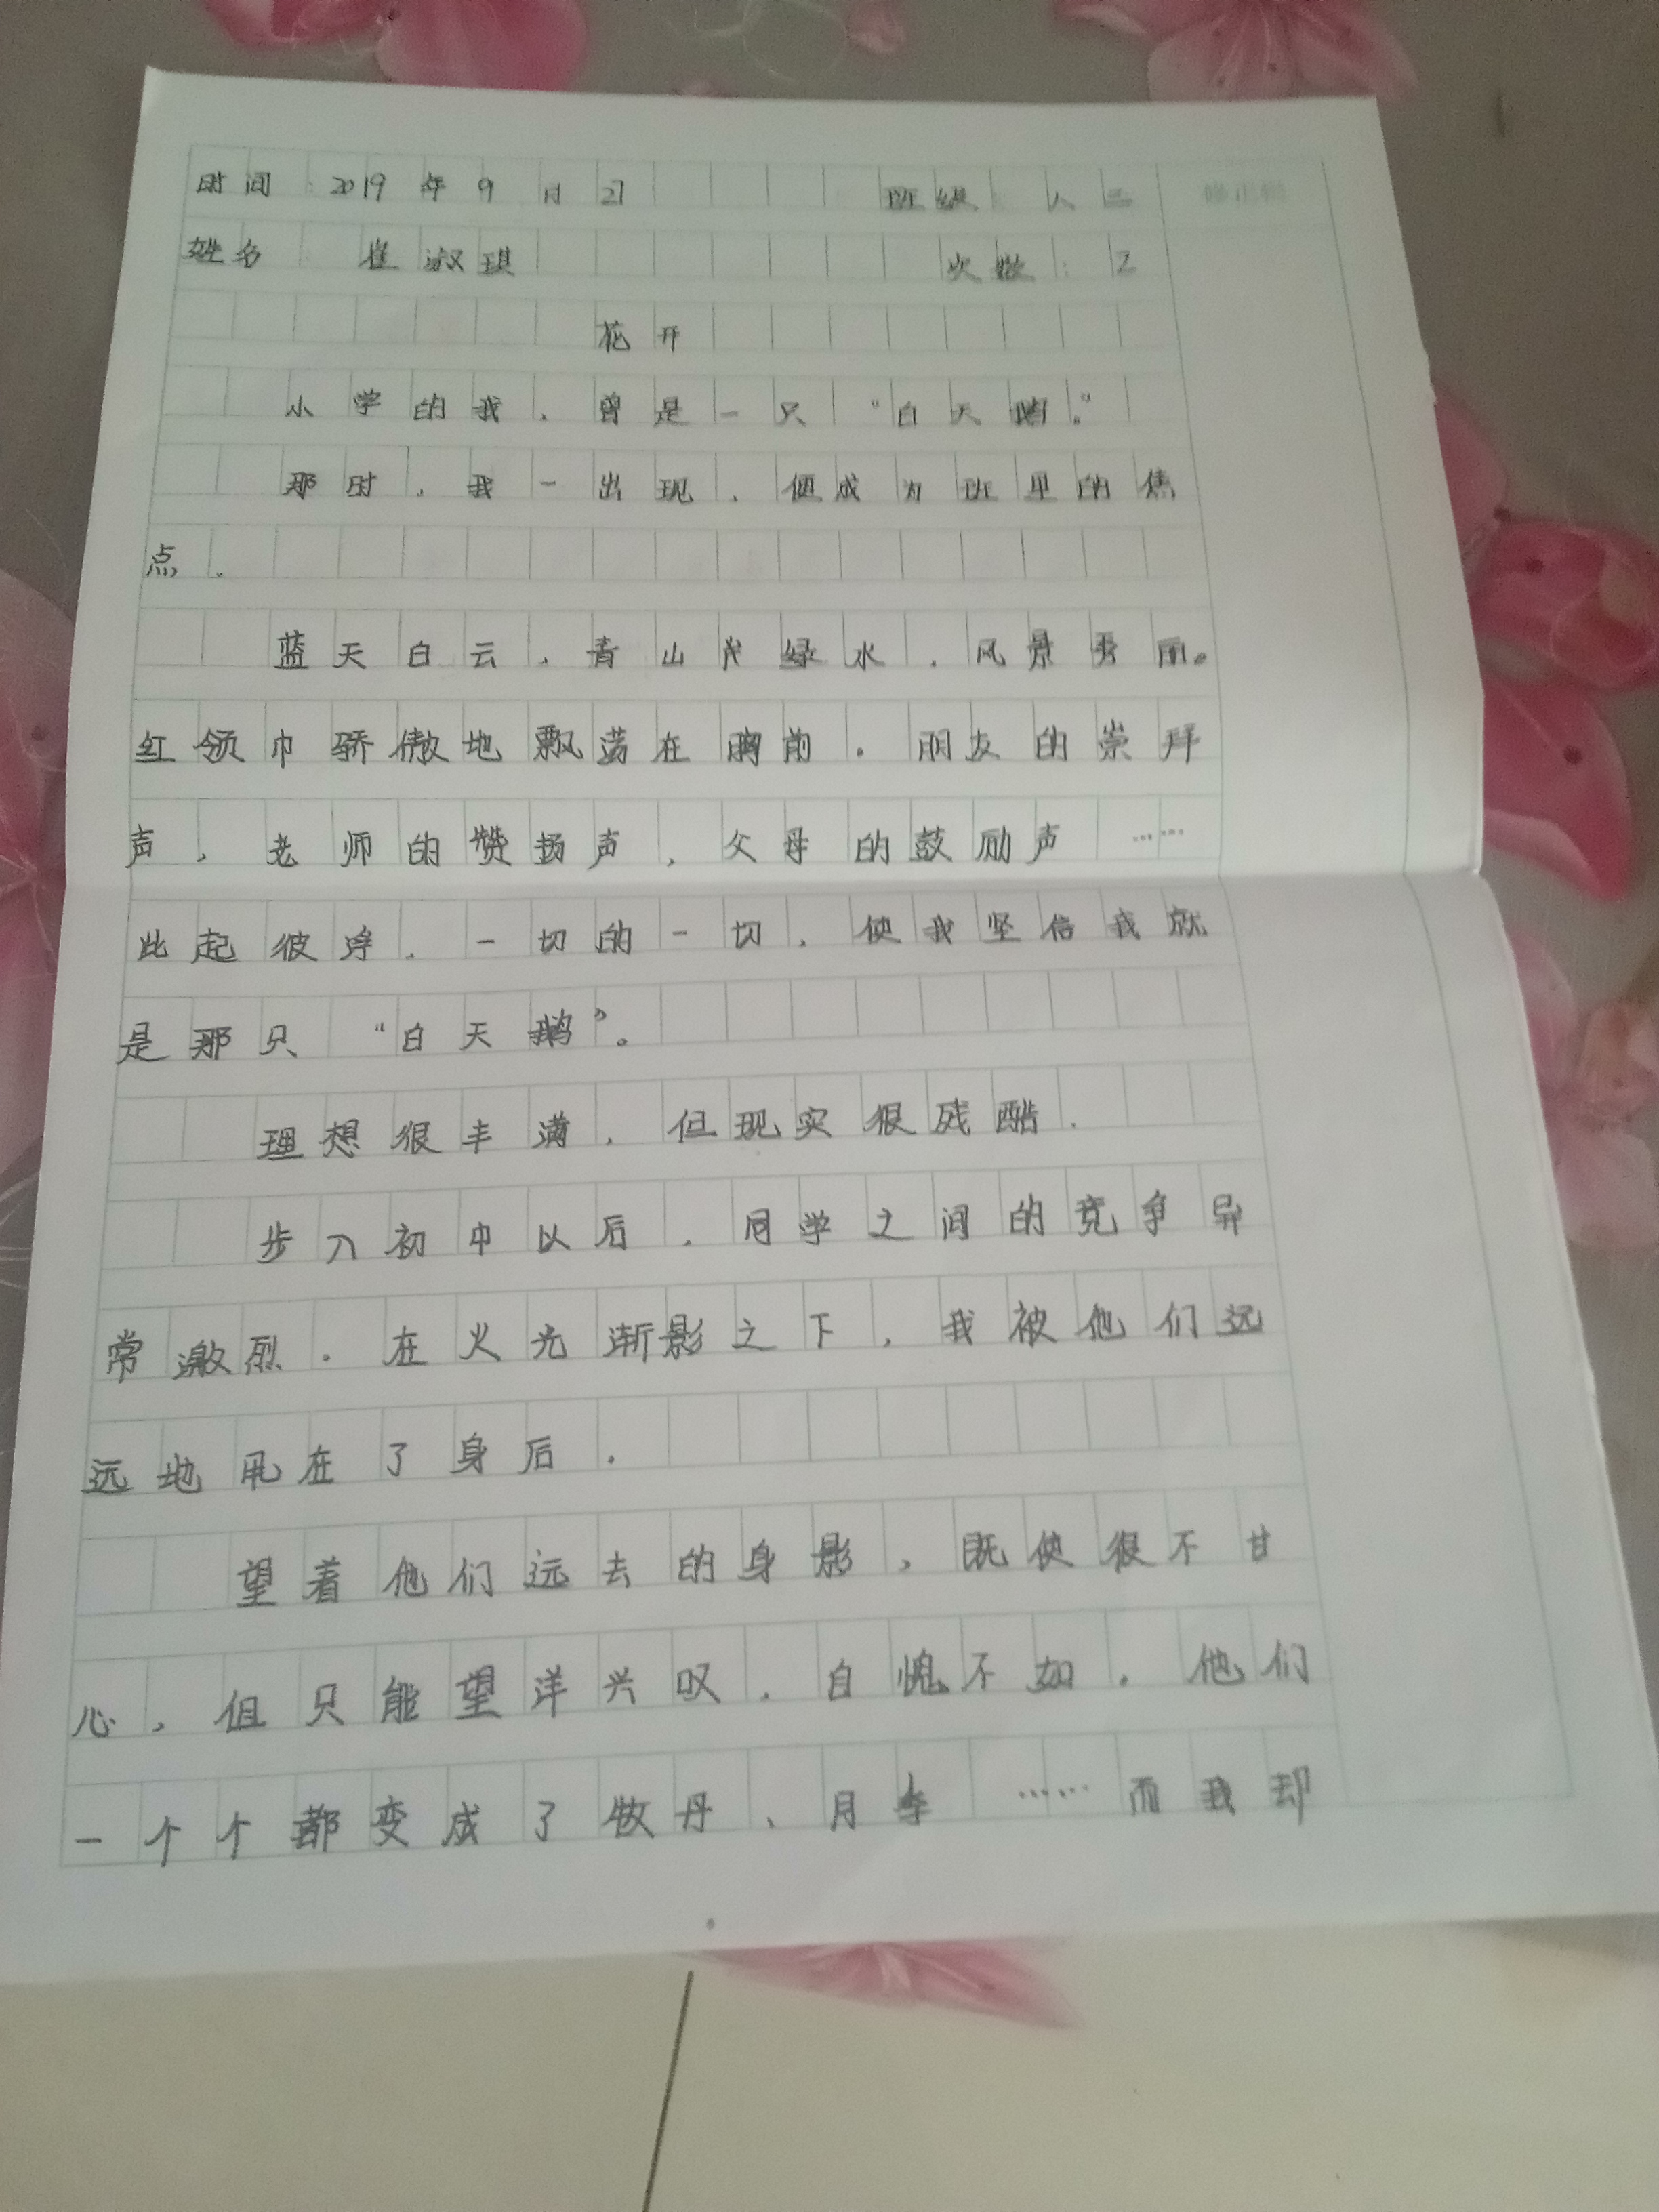 时间：2019年9月21 班级：八二
姓名 崔淑琪 次数：2
花开
小学的我，曾是一只“白天鹅。”
那时，我一出现，便成为班里的焦
点。
蓝天白云，青山 绿水，风景秀丽。
红领巾骄傲地飘荡在胸前。朋友的崇拜
声，老师的赞扬声，父母的鼓励声……
此起彼浮。一切的一切，使我坚信我就
是那只“白天鹅”。
理想很丰满，但现实很残酷。
步入初中以后，同学之间的竞争异
常激烈。在火光渐影之下，我被他们远
远地甩在了身后。
望着他们远去的身影，既使很不甘
心，但只能望洋兴叹，自愧不如。他们
一个个都变成了牧丹、月季……而我却